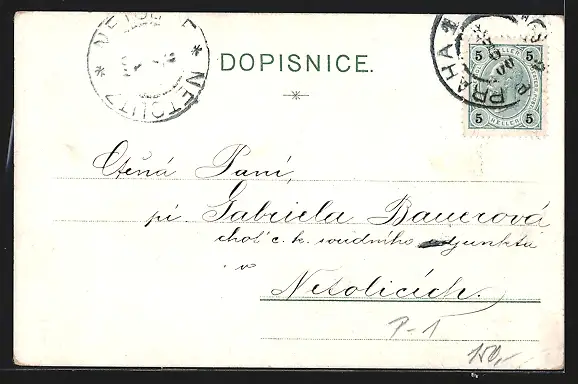 NETOLITZ * NETOLITZ *
DOPISNICE.
PRAHA 1
5 5
HELLER
5 5
Ctěná Paní,
pí. Gabriela Bauerová
choť c. k. soudního adjunkta
v
Netolicích.
P-1
150,-